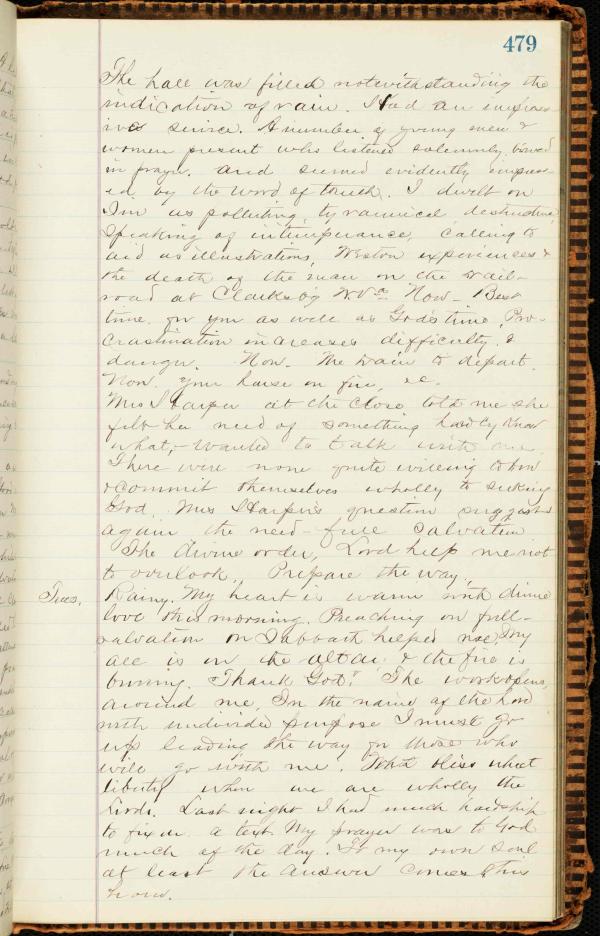 479
The hall was filled notwithstanding the
indication of rain. Had an impress
ive service. A number of young men &
women present who listened solemnly, bowed
in prayer, and seemed evidently impress-
ed by the word of truth. I dwelt on
Sin as polluting, tyrannical, destructive,
Speaking of intemperance, calling to
aid as illustrations, Weston experiences &
the death of the man on the rail-
road at Clarksb'g W.Va. Now - Best
time for you as well as God's time, Pro-
crastination increases difficulty &
danger. Now. The train to depart.
Now. your house on fire, &c.
Mrs Harper at the close told me she
felt her need of something hardly know
what,- wanted to talk with me.
There were none quite willing to bow
& commit themselves wholly to seeking
God. Mrs Harper's question suggests
again the need - full salvation
The divine order, Lord help me not
to overlook. Prepare the way.
Tues. Rainy. My heart is warm with divine
love this morning. Preaching on full-
salvation on Sabbath helped me. My
all is on the altar & the fire is
burning. Thank God! The work opens
around me. In the name of the Lord
with undivided purpose I must go
up leading the way for those who
will go with me. What bliss what
liberty when we are wholly the
Lord's. Last night I had much hardship
to fix on a text. My prayer was to God
much of the day. To my own soul
at least the answer comes this
hour.